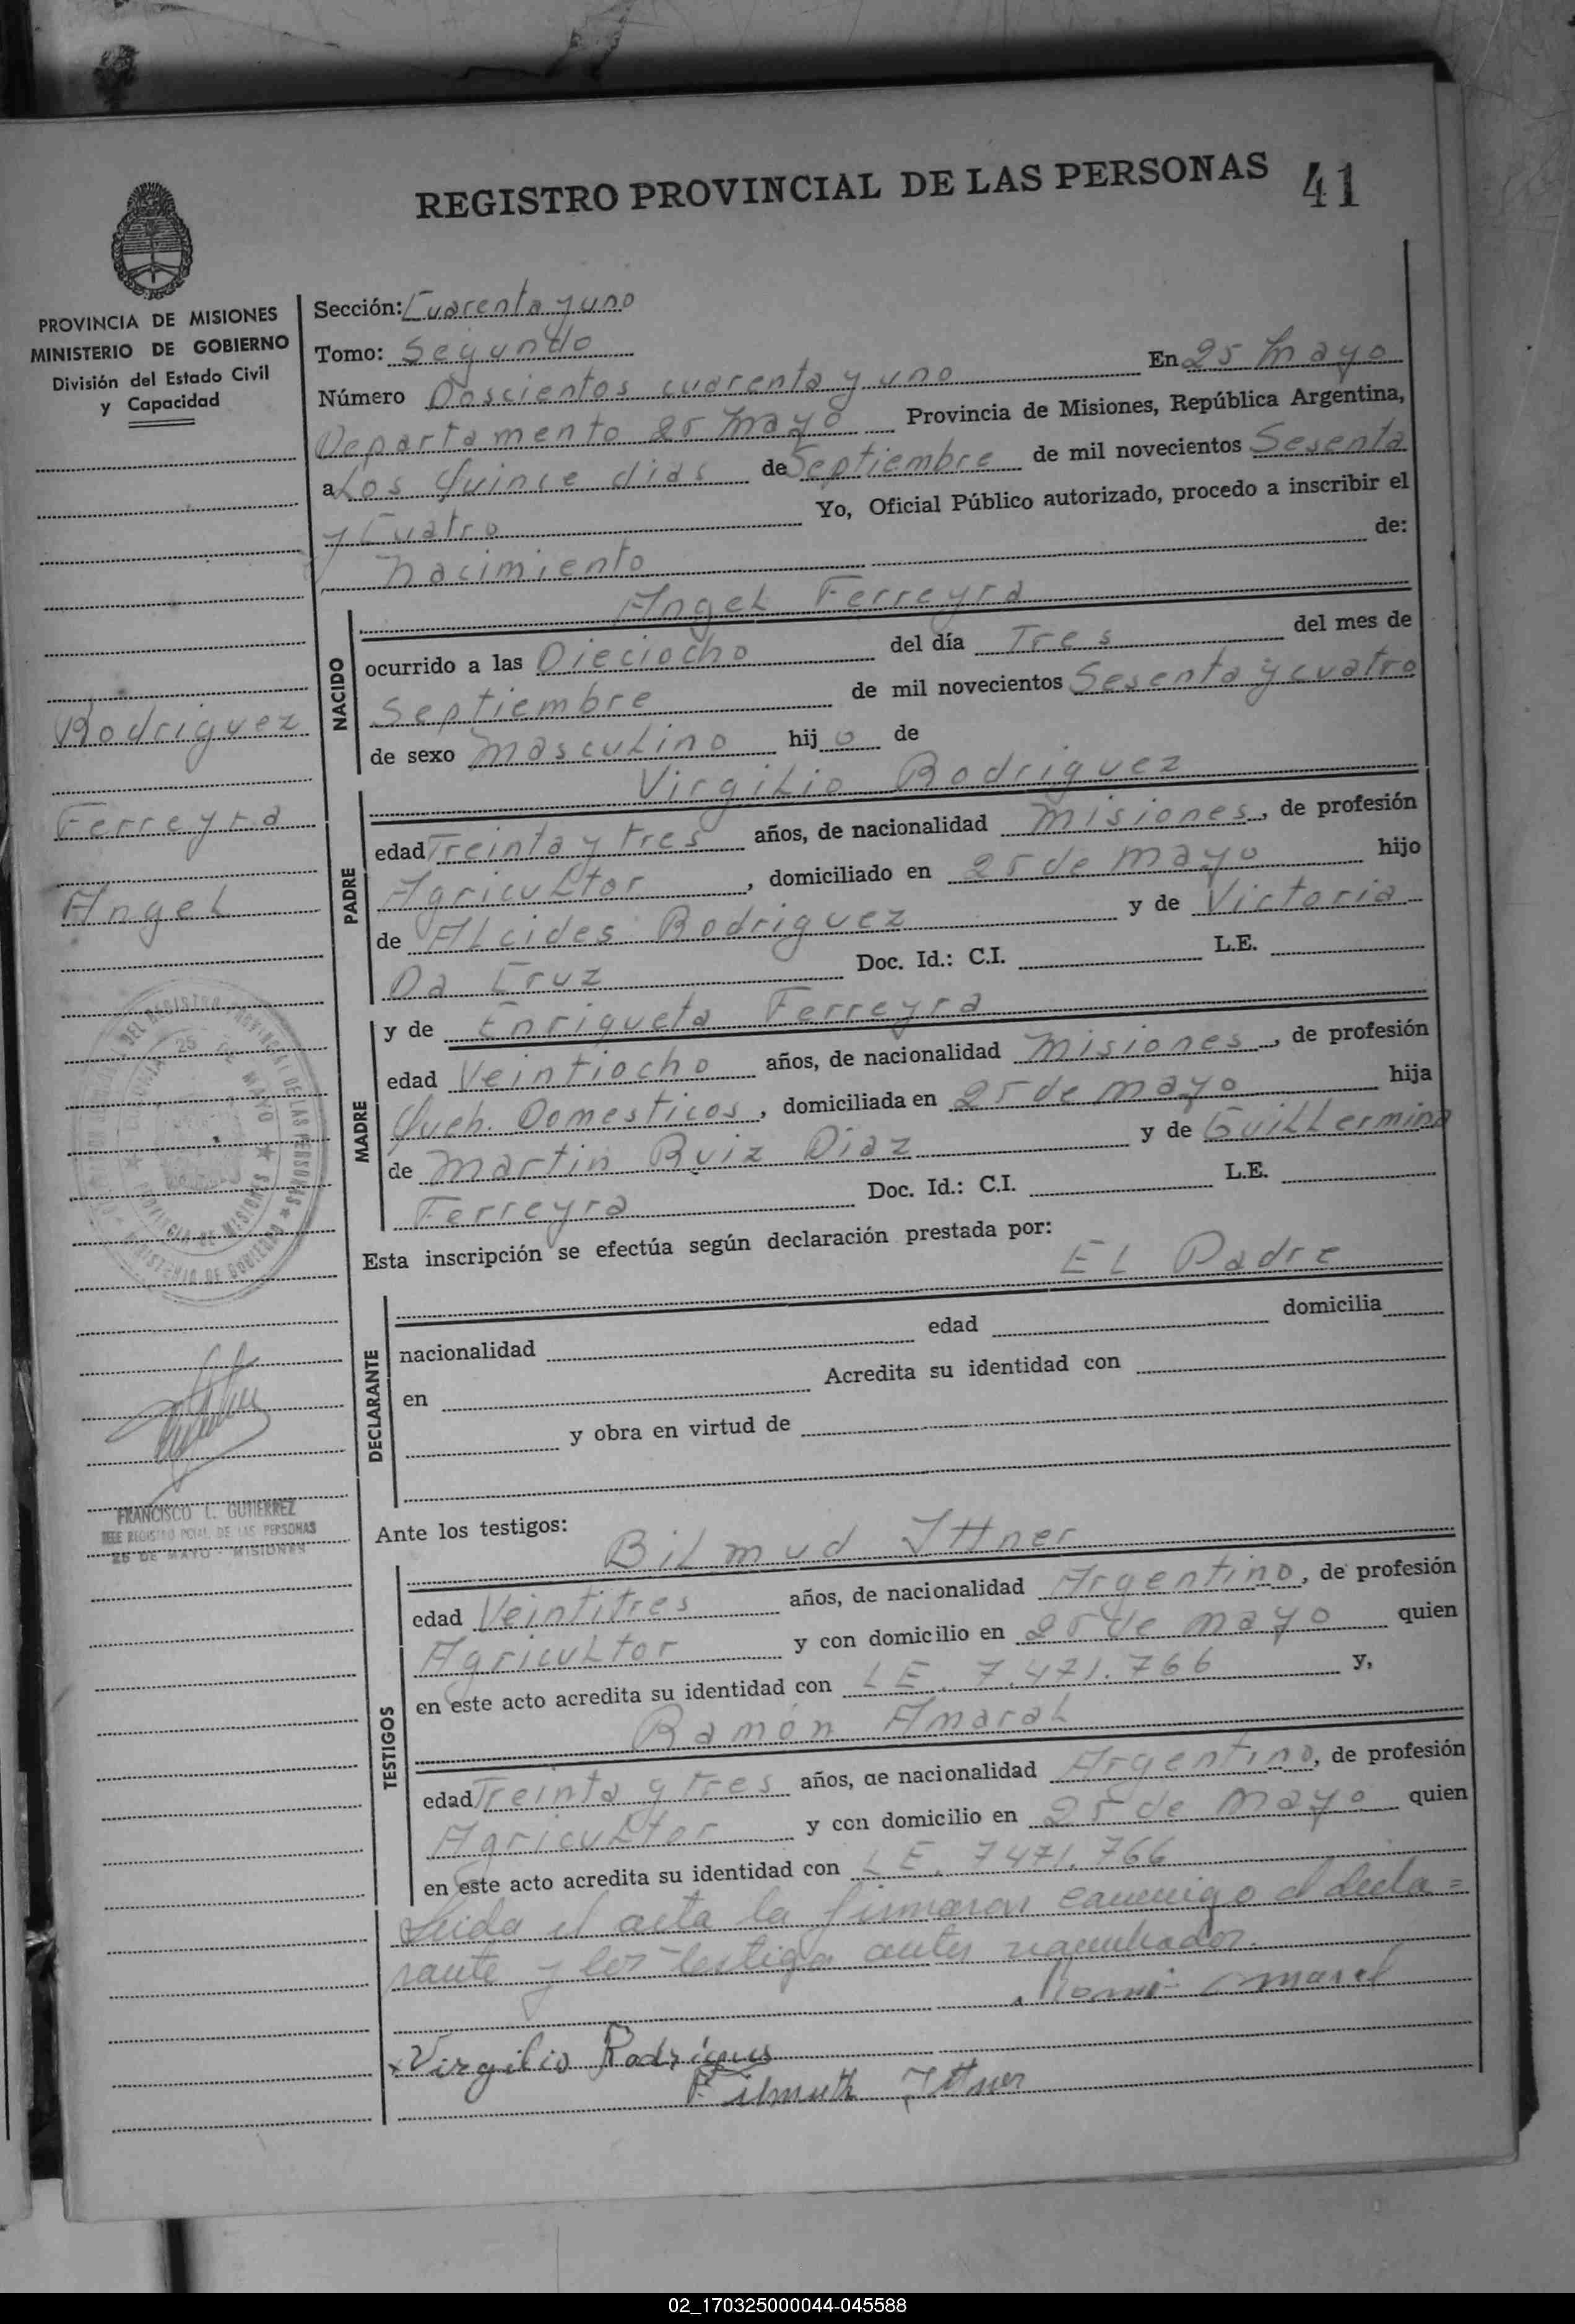 REGISTRO PROVINCIAL DE LAS PERSONAS 41
PROVINCIA DE MISIONES
MINISTERIO DE GOBIERNO
División del Estado Civil
y Capacidad
Rodriguez
Ferreyra
Angel
FRANCISCO L. GUTIERREZ
JEFE REGISTRO PCIAL. DE LAS PERSONAS
25 DE MAYO - MISIONES
Sección: Cuarenta y uno
Tomo: Segundo
Número Doscientos cuarenta y uno En 25 Mayo
Departamento 25 Mayo Provincia de Misiones, República Argentina,
a Los Quince dias de Septiembre de mil novecientos Sesenta
y Cuatro Yo, Oficial Público autorizado, procedo a inscribir el
Nacimiento de:
NACIDO
Angel Ferreyra
ocurrido a las Dieciocho del día Tres del mes de
Septiembre de mil novecientos Sesenta y cuatro
de sexo Masculino hijo de
PADRE
Virgilio Rodriguez
edad Treinta y tres años, de nacionalidad Misiones, de profesión
Agricultor, domiciliado en 25 de Mayo hijo
de Alcides Rodriguez y de Victoria
Da Cruz Doc. Id.: C.I. L.E.
MADRE
y de Enriqueta Ferreyra
edad Veintiocho años, de nacionalidad Misiones, de profesión
Queh. Domesticos, domiciliada en 25 de Mayo hija
de Martin Ruiz Diaz y de Guillermina
Ferreyra Doc. Id.: C.I. L.E.
Esta inscripción se efectúa según declaración prestada por:
El Padre
DECLARANTE
nacionalidad edad domicilia
en Acredita su identidad con
y obra en virtud de
Ante los testigos:
TESTIGOS
Bilmud Ittner
edad Veintitres años, de nacionalidad Argentino, de profesión
Agricultor y con domicilio en 25 de Mayo quien
en este acto acredita su identidad con LE. 7.471.766 y,
Ramón Amaral
edad Treinta y tres años, de nacionalidad Argentino, de profesión
Agricultor y con domicilio en 25 de Mayo quien
en este acto acredita su identidad con LE. 7471.766
Leida el acta la firmaron conmigo el decla=
rante y los testigo antes nombrados.
Amaral
x Virgilio Rodrigues
Ittner
02_170325000044-045588